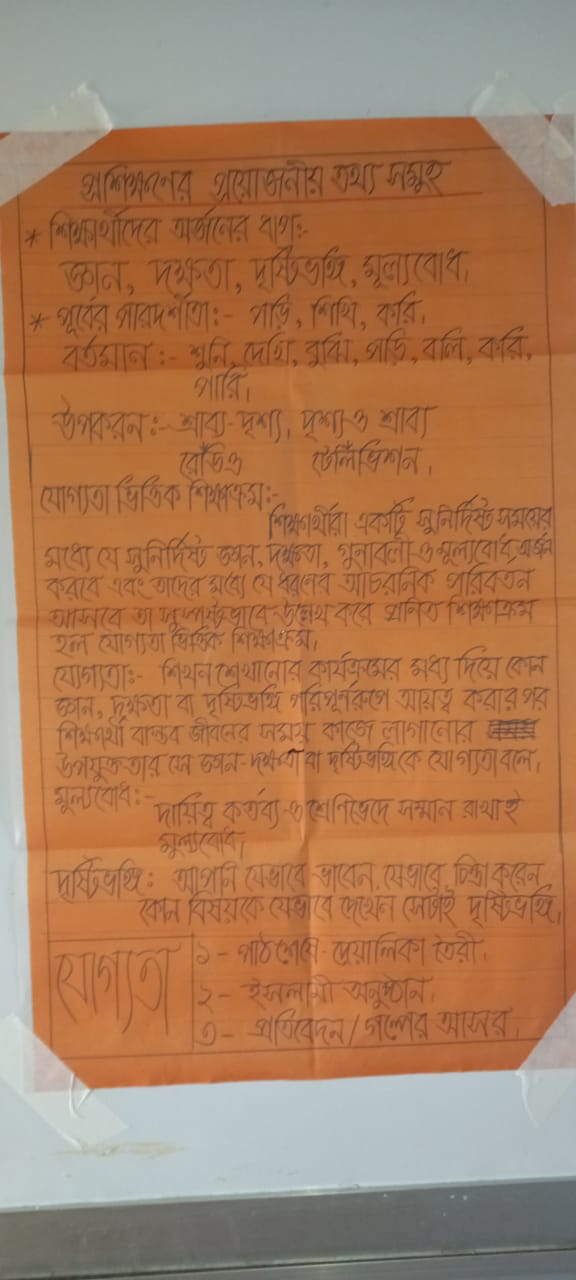 প্রশিক্ষণের প্রয়োজনীয় তথ্য সমুহ
* শিক্ষার্থীদের অর্জনের ধাপ:-
জ্ঞান, দক্ষতা, দৃষ্টিভঙ্গি, মূল্যবোধ।
* পূর্বের পারদর্শীতা:- পড়ি, শিখি, করি।
বর্তমান:- শুনি, দেখি, বুঝি, পড়ি, বলি, করি,
পারি।
উপকরন:- শ্রাব্য-দৃশ্য, দৃশ্য ও শ্রাব্য
রেডিও টেলিভিশন।
যোগ্যতা ভিত্তিক শিক্ষাক্রম:-
শিক্ষার্থীরা একটি সুনির্দিষ্ট সময়ের
মধ্যে যে সুনির্দিষ্ট জ্ঞান, দক্ষতা, গুনাবলী ও মূল্যবোধ অর্জন
করবে এবং তাদের মধ্যে যে ধরনের আচরনিক পরিবর্তন
আসবে তা সুস্পষ্টভাবে উল্লেখ করে প্রনিত শিক্ষাক্রম
হল যোগ্যতা ভিত্তিক শিক্ষাক্রম।
যোগ্যতা:- শিখন শেখানোর কার্যক্রমের মধ্য দিয়ে কোন
জ্ঞান, দক্ষতা বা দৃষ্টিভঙ্গি পরিপূর্ণরূপে আয়ত্ব করার পর
শিক্ষার্থী বাস্তব জীবনের সময় কাজে লাগানোর
উপযুক্ততার সে জ্ঞান-দক্ষতা বা দৃষ্টিভঙ্গিকে যোগ্যতা বলে।
মূল্যবোধ:-
দায়িত্ব কর্তব্য ও শ্রেণিভেদে সম্মান রাখাই
মূল্যবোধ।
দৃষ্টিভঙ্গি: আপনি যেভাবে ভাবেন, যেভাবে চিন্তা করেন
কোন বিষয়কে যেভাবে দেখেন সেটাই দৃষ্টিভঙ্গি।
যোগ্যতা
১- পাঠ শেষে দেয়ালিকা তৈরী।
২- ইসলামী অনুষ্ঠান।
৩- প্রতিবেদন/গল্পের আসর।